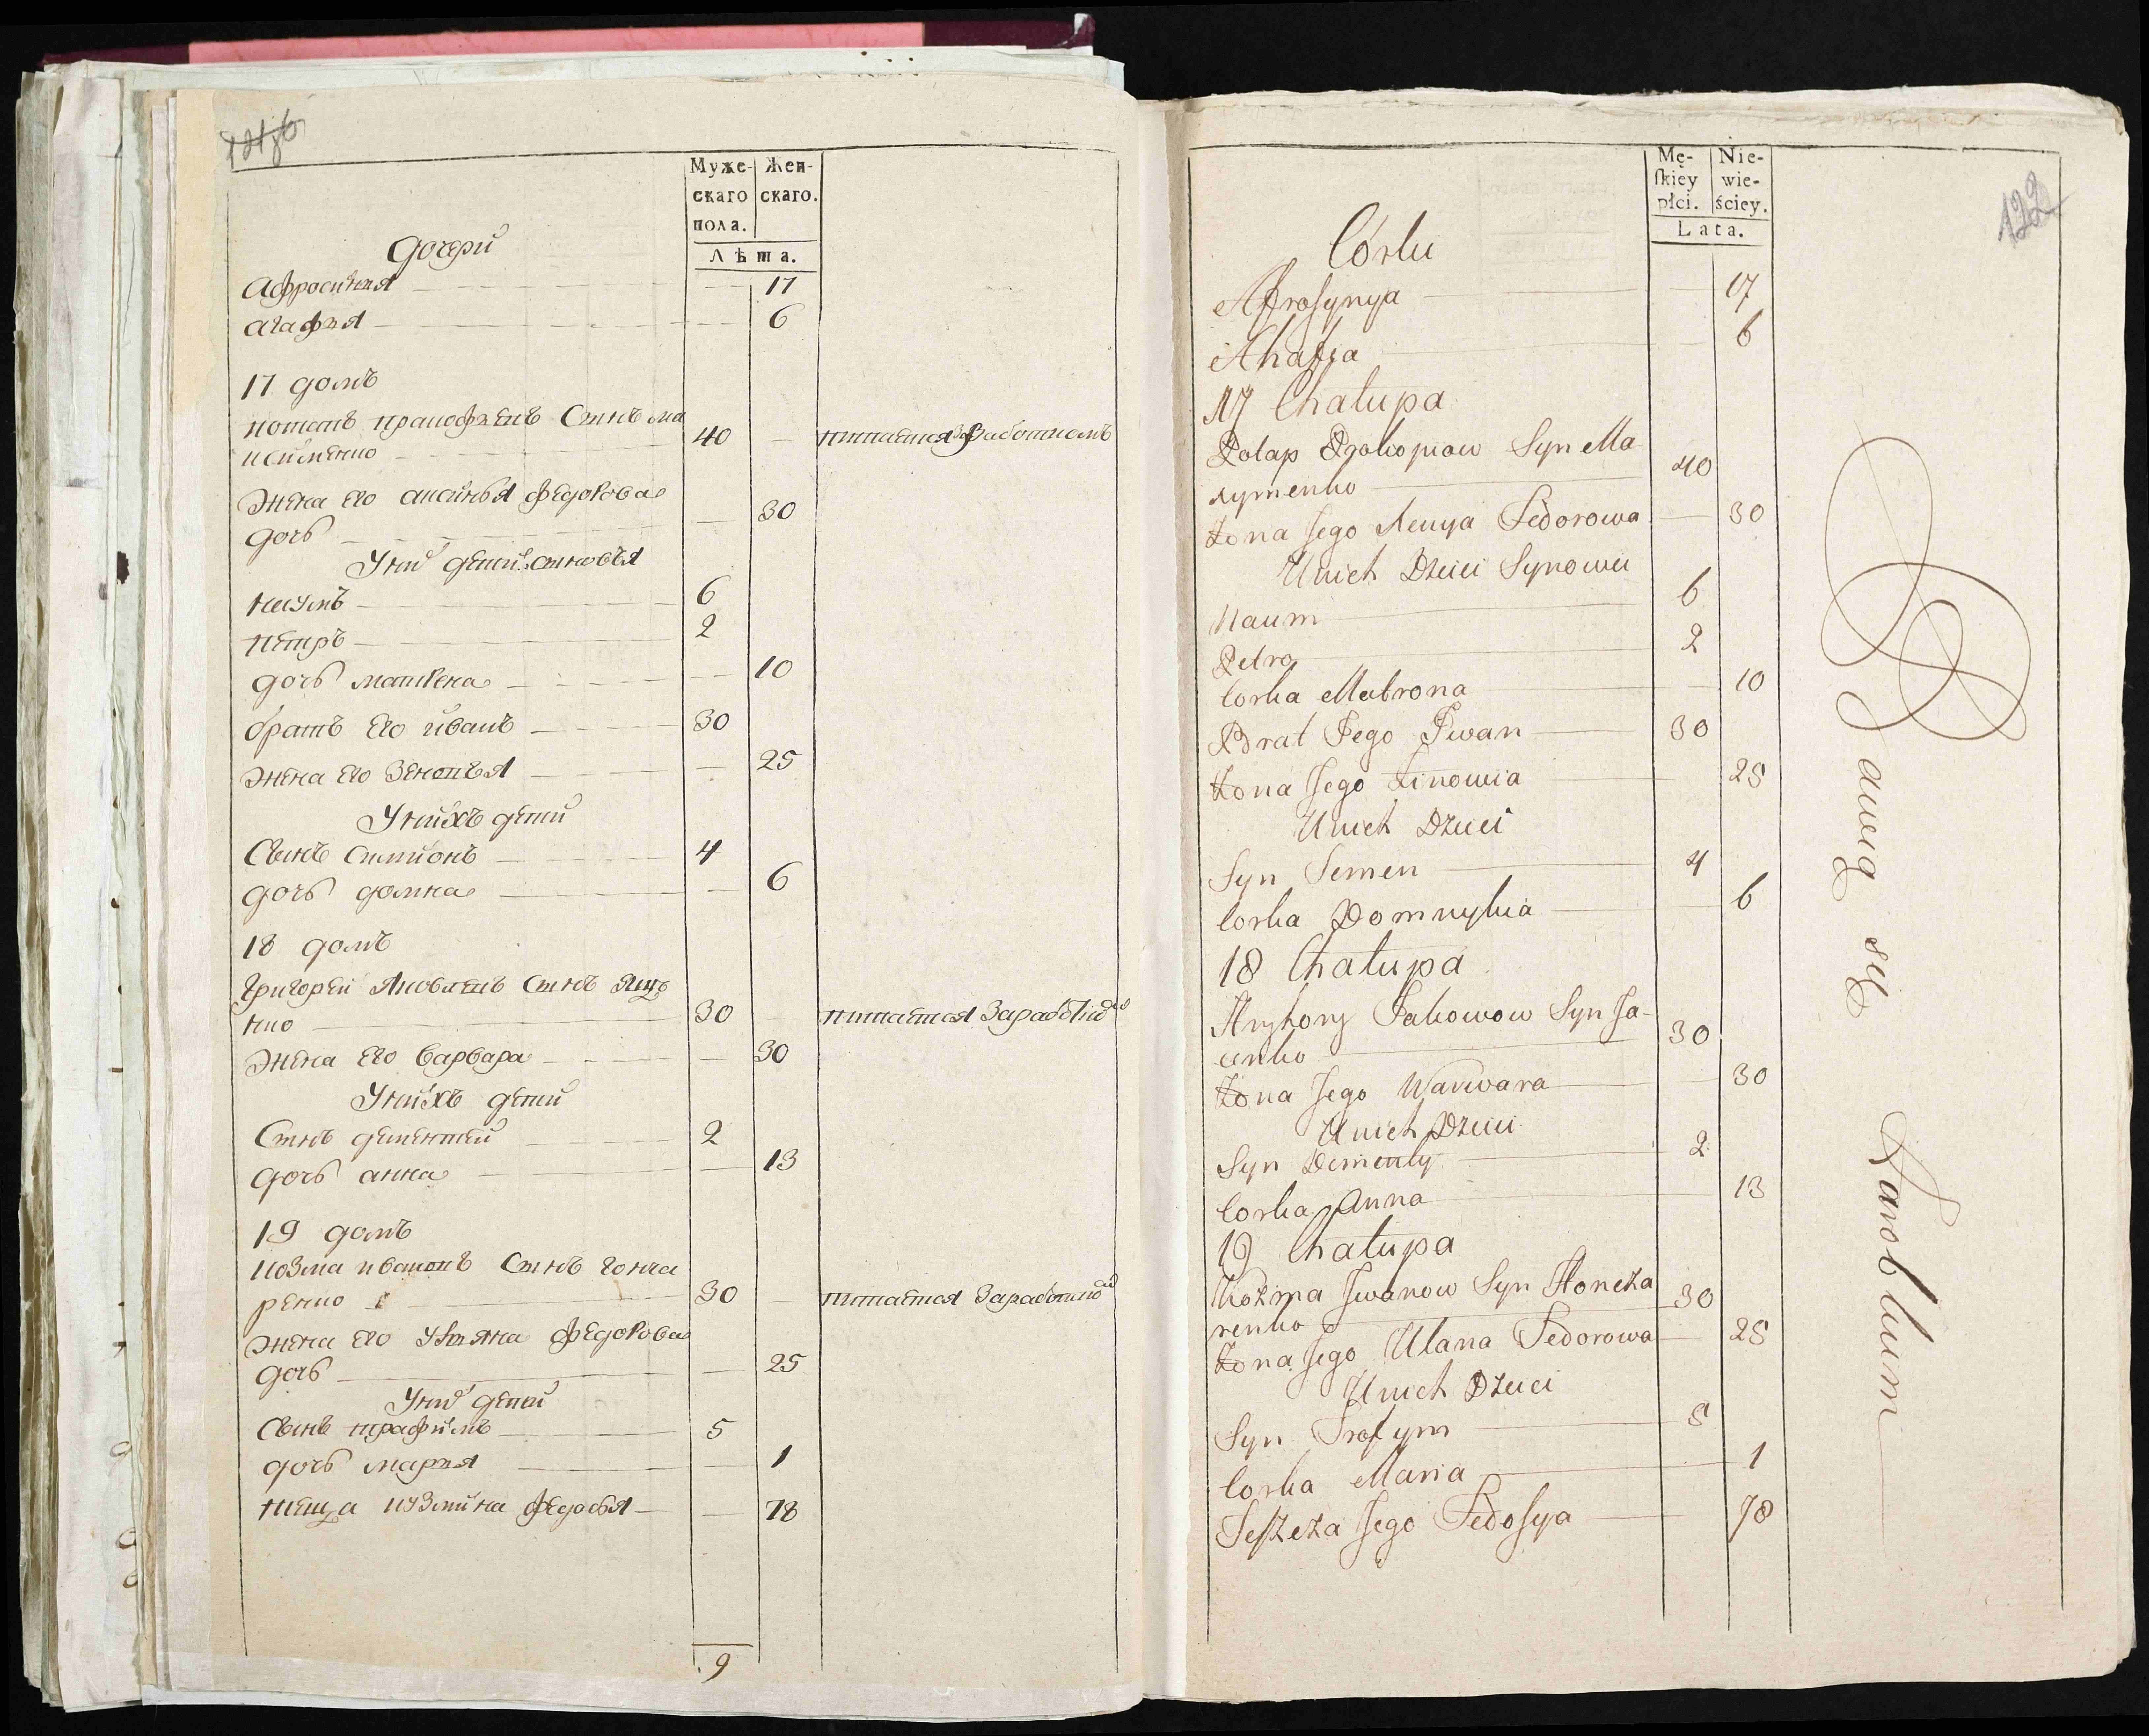 Муже-
скаго
пола.
Жен-
скаго.
Лѣта.
дочери
Афросинья 17
агафья 6
17 домъ
потапъ пракофъевъ Сынъ ма
ксименко 40 питается Работкомъ
Жена его аксинья федорова
дочь 30
У них детей: сыновья
наумъ 6
петръ 2
дочь матрена 10
братъ его иванъ 30
жена его Зеновья 25
У нихъ детей
Сынъ Симионъ 4
дочь домна 6
18 домъ
Григорей Яковлевъ Сынъ Яце
нко 30 питается Заработко
жена его Варвара 30
У нихъ детей
Сынъ дементей 2
дочь анна 13
19 домъ
козма ивановъ Сынъ гонча
ренко 30 питается Заработко
жена его Ульяна федорова
дочь 25
У них детей
Сынъ трафимъ 5
дочь марья 1
теща кузмина федосья 78
9
Mę-
ſkiey
płci.
Nie-
wie-
ściey.
Lata.
122
Córki
Afrosynya 17
Ahafia 6
17 Chałupa
Potap Prokopiow Syn Ma
xymenko 40
Żona Jego Xenya Fedorowa 30
U nich Dzieci Synowie
Naum 6
Petro 2
Corka Matrona 10
Brat Jego Iwan 30
Żona Jego Zinowia 25
U nich Dzieci
Syn Semen 4
Corka Domnykia 6
18 Chałupa
Hryhory Jakowow Syn Ja-
cenko 30
Żona Jego Warwara 30
U nich Dzieci
Syn Dementy 2
Corka Anna 13
19 Chałupa
Kozma Iwanow Syn Honcza
renko 30
Żona Jego Ulana Fedorowa 25
U nich Dzieci
Syn Trofym 5
Corka Maria 1
Teszcza Jego Fedosya 78